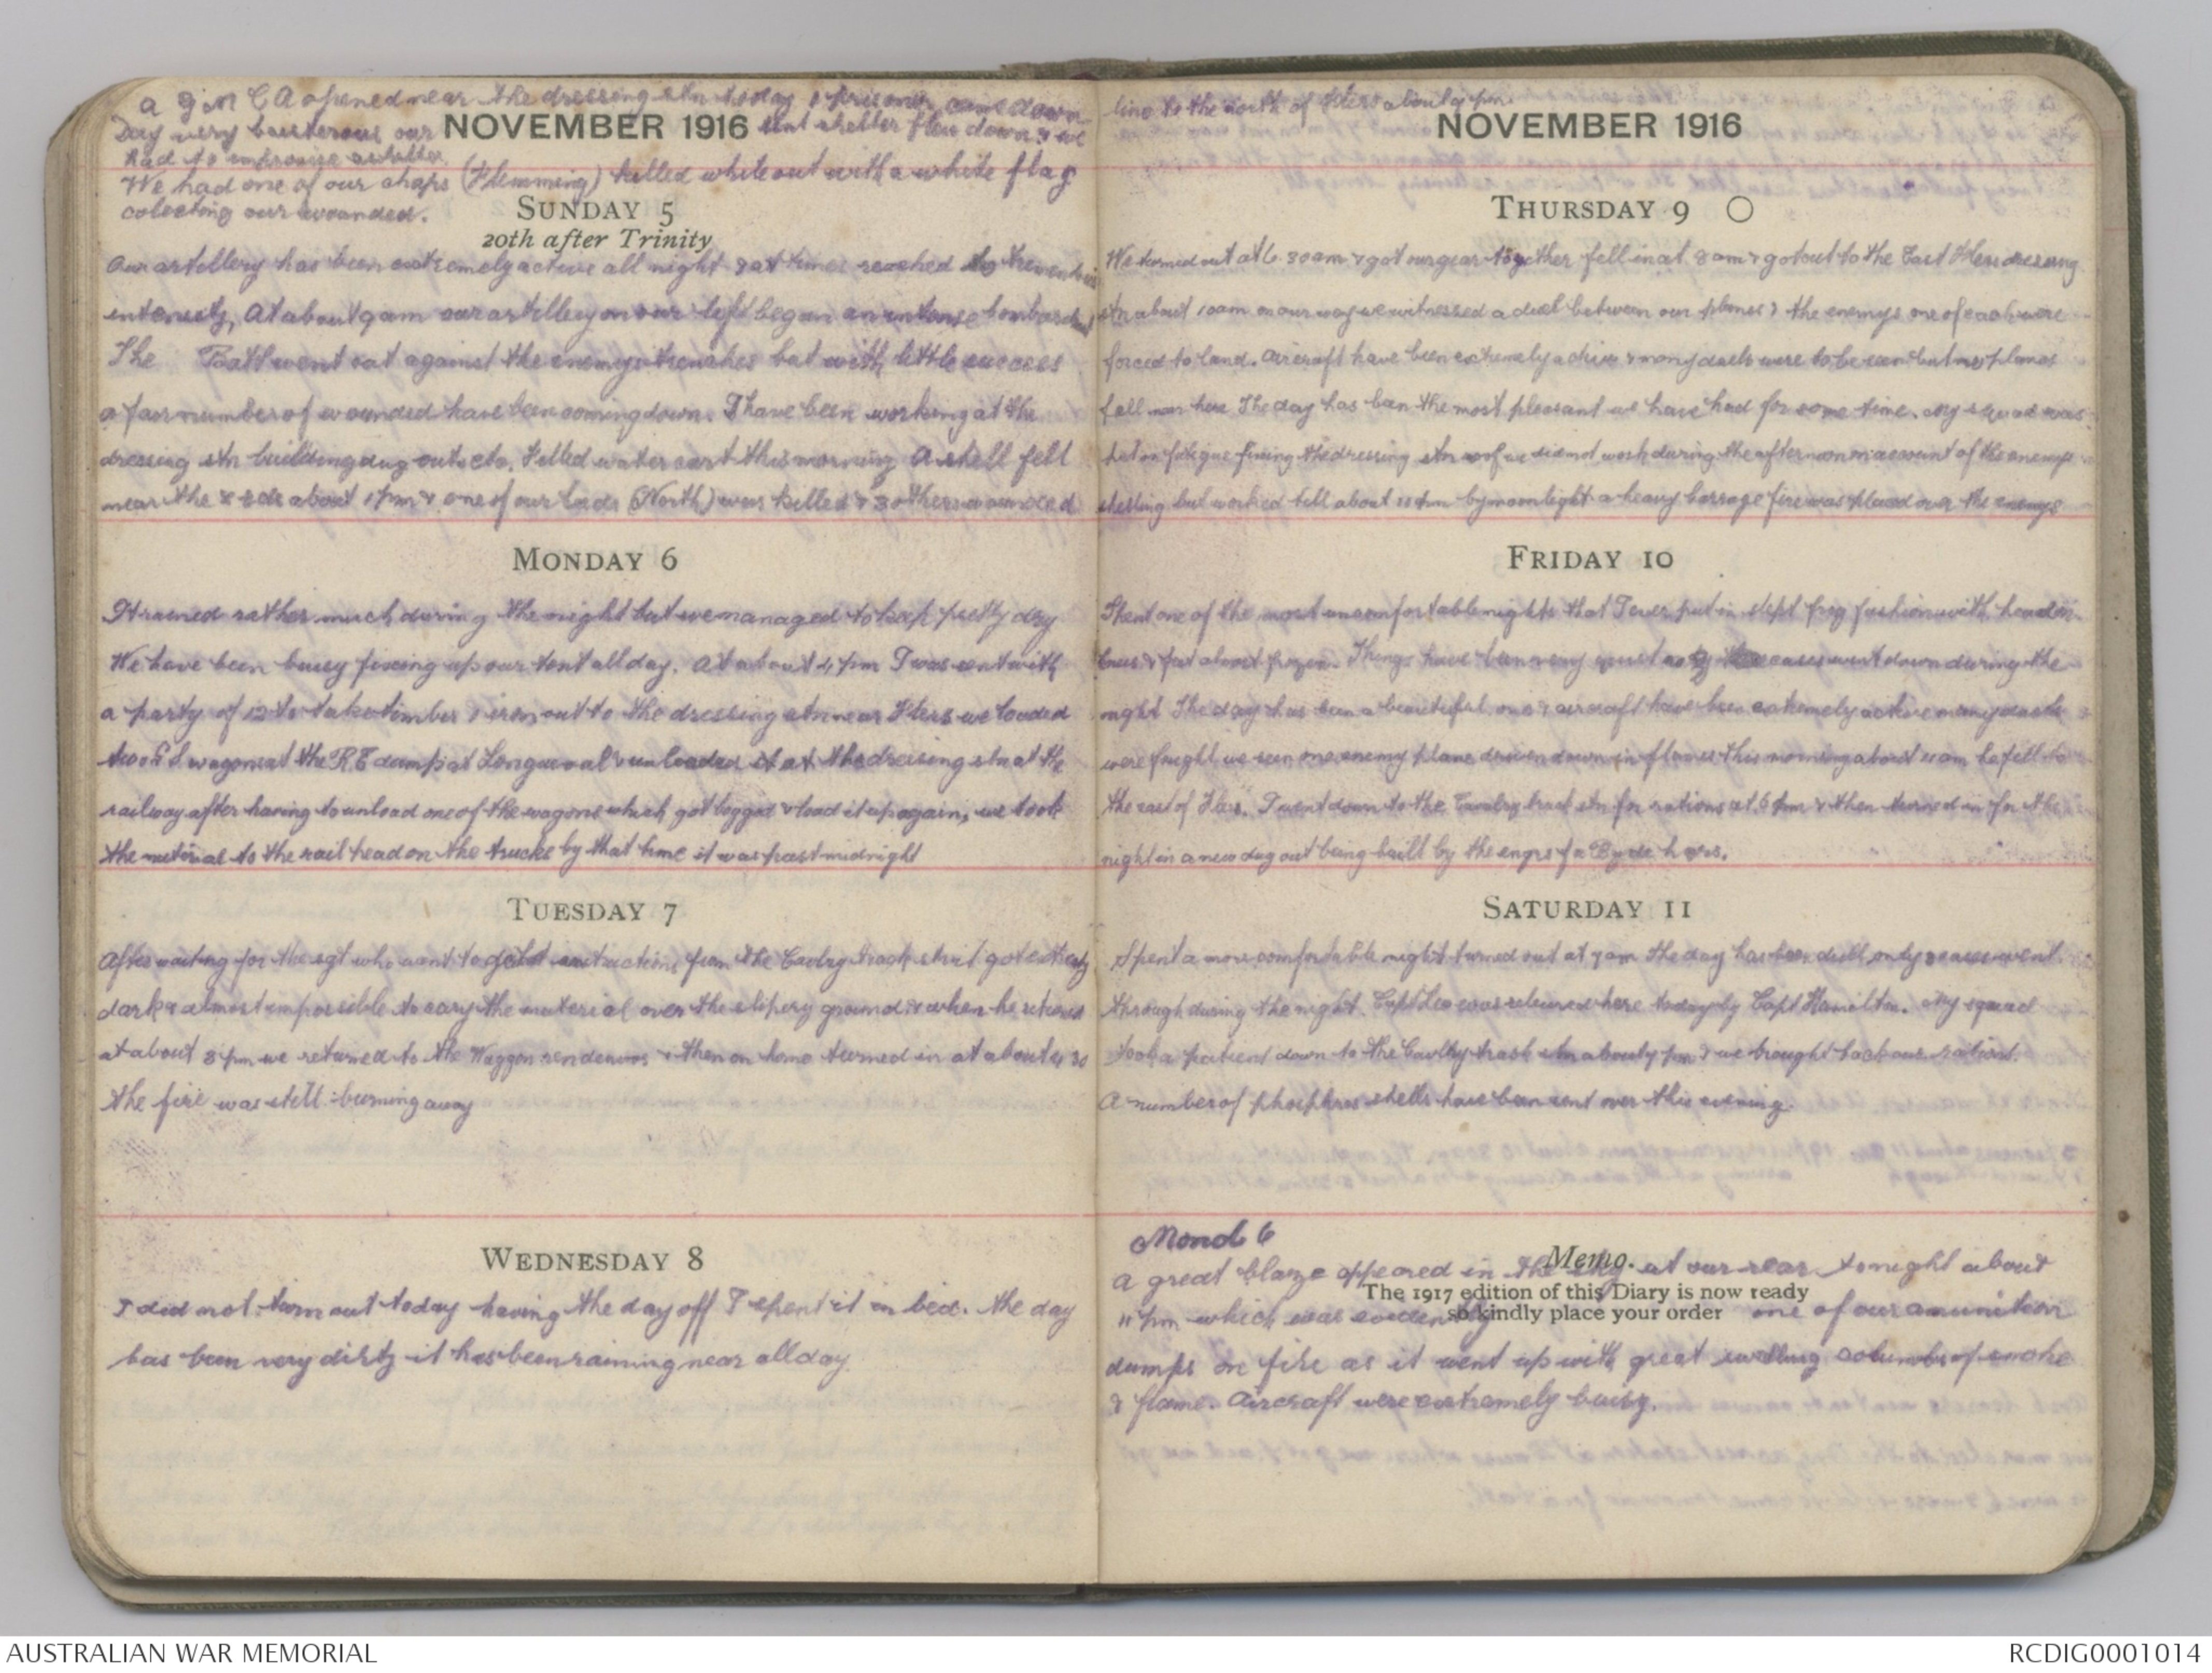 a Y M C A opened near the dressing stn today prisoners came down
Day very boisterous our NOVEMBER 1916 tent shelter flew down & we
had to improvise
We had one of our chaps (Flemming) killed while out with a white flag
colecting our wounded.
SUNDAY 5
20th after Trinity
Our artillery has been extremely active all night & at times reached
intensity, At about 9 am our artillery on our left began an intense
The Batt went out against the enemys trenches but with little success
a fair number of wounded have been coming down. I have been working at the
dressing stn building dug outs etc. Filled water cart this morning A shell fell
near the about 1 pm & one of our lads (North) was killed & 3 others wounded
MONDAY 6
It rained rather much during the night but we managed to keep pretty dry
We have been busy fixing up our tent all day. At about 4 pm I was sent with
a party of 12 to take timber & iron out to the dressing stn near Flers we loaded
two G S wagons at the R E dump at Longueval & unloaded it at the dressing stn at the
railway after having to unload one of the wagons which got bogged & load it up again, we took
the material to the rail head on the trucks by that time it was past midnight
TUESDAY 7
After waiting for the sgt who went to get instructions from the track stn it got
dark & almost impossible to cary the material over the slipery ground & when he returned
at about 3 pm we returned to the Waggon & then on home turned in at about 4 30
the fire was still burning away
WEDNESDAY 8
I did not turn out today having the day off I spent it in bed. the day
has been very dirty it has been raining near all day.
line to the north of Flers about 9 pm.
NOVEMBER 1916
THURSDAY 9
We turned out at 6.30 am & got our gear together fell in at 8 am & got out to the East Flers dressing
stn about 10 am on our way we witnessed a duel between our planes & the enemys one of each were
forced to land. Aircraft have been extremely active & many duels were to be seen but planes
fell near here The day has been the most pleasant we have had for some time. My squad was
put on fatigue fixing the dressing stn roof we work during the afternoon on account of the enemys
shelling but worked till about pm by moonlight a heavy barrage fire was placed over the enemys
FRIDAY 10
Spent one of the most uncomfortable nights that I ever put in slept frog fashion with head on
knees & feet almost frozen. Things have been very quiet cases went down during the
night The day has been a beautiful one & aircraft have been extremely active many duels
were fought we seen one enemy plane driven down in flames this morning about am he fell to
the east of Flers. I went down to the track stn for rations at 6 pm & then turned in for the
night in a new dug out being built by the engrs
SATURDAY 11
Spent a more comfortable night turned out at 7 am The day has been dull only cases went
through during the night. Capt was relieved here today by Capt Hamilton. My squad
took a patient down to the track stn about pm & we brought back our rations.
A number of phosphros shells have been sent over this evening.
Mond 6
Memo.
a great blaze appeared in the sky at our rear tonight about
The 1917 edition of this Diary is now ready
so kindly place your order
11 pm which was evidently one of our amunition
dumps on fire as it went up with great columbs of smoke
& flame. Aircraft were extremely buisy.
AUSTRALIAN WAR MEMORIAL
RCDIG0001014